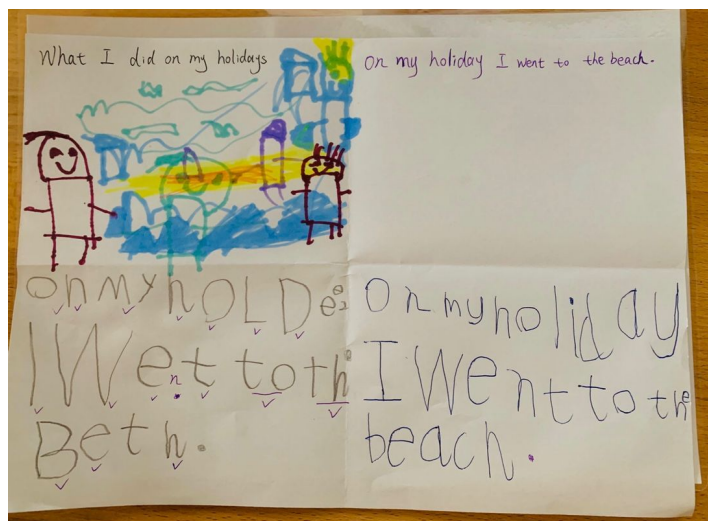 What I did on my holidays
On my holiday I went to the beach.
on my hOLDe
I Wentt to the
Beth.
On my holiday
I Went to the
beach.